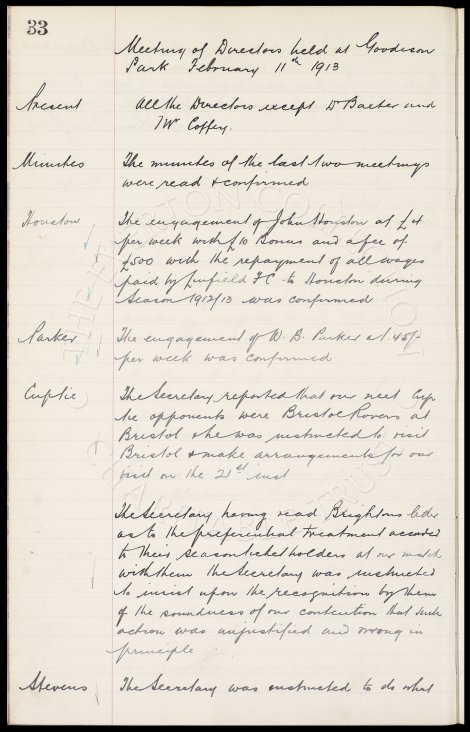 33
Meeting of Directors held at Goodison
Park February 11th 1913
Present All the Directors except Dr Baxter and
Mr Coffey.
Minutes The minutes of the last two meetings
were read & confirmed
Houston The engagement of John Houston at £4
per week with £10 Bonus and a fee of
£500 with the repayment of all wages
paid by Linfield FC to Houston during
Season 1912/13 was confirmed
Parker The engagement of W. B. Parker at 45/-
per week was confirmed
Cuptie The Secretary reported that our next Cup
tie opponents were Bristol Rovers at
Bristol & he was instructed to visit
Bristol & make arrangements for our
visit on the 21st inst
The Secretary having read Brightons letter
as to the preferential treatment accorded
to their season ticket holders at our match
with them the Secretary was instructed
to insist upon the recognition by them
of the soundness of our contention that such
action was unjustified and wrong in
principle
Stevens The Secretary was instructed to do what
THE EVERTON COLLECTION
© CHARITABLE TRUST